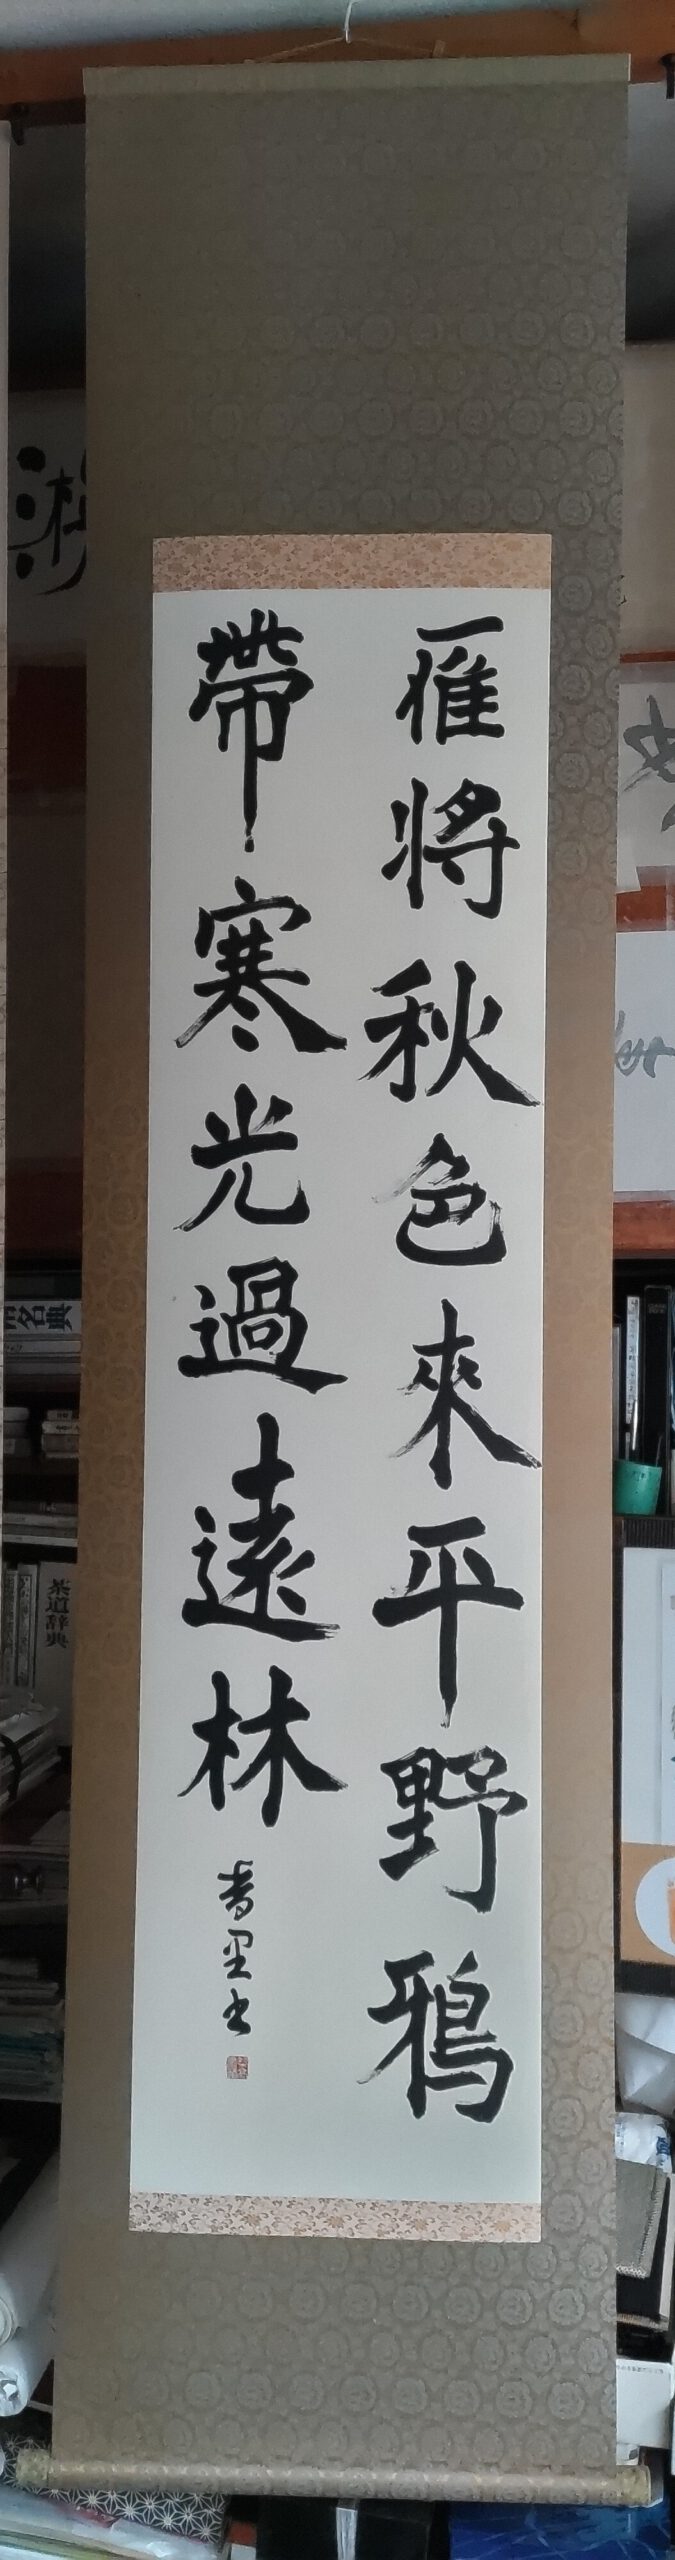 雁將秋色來平野鴉
帶寒光過遠林
茶道辞典
名典